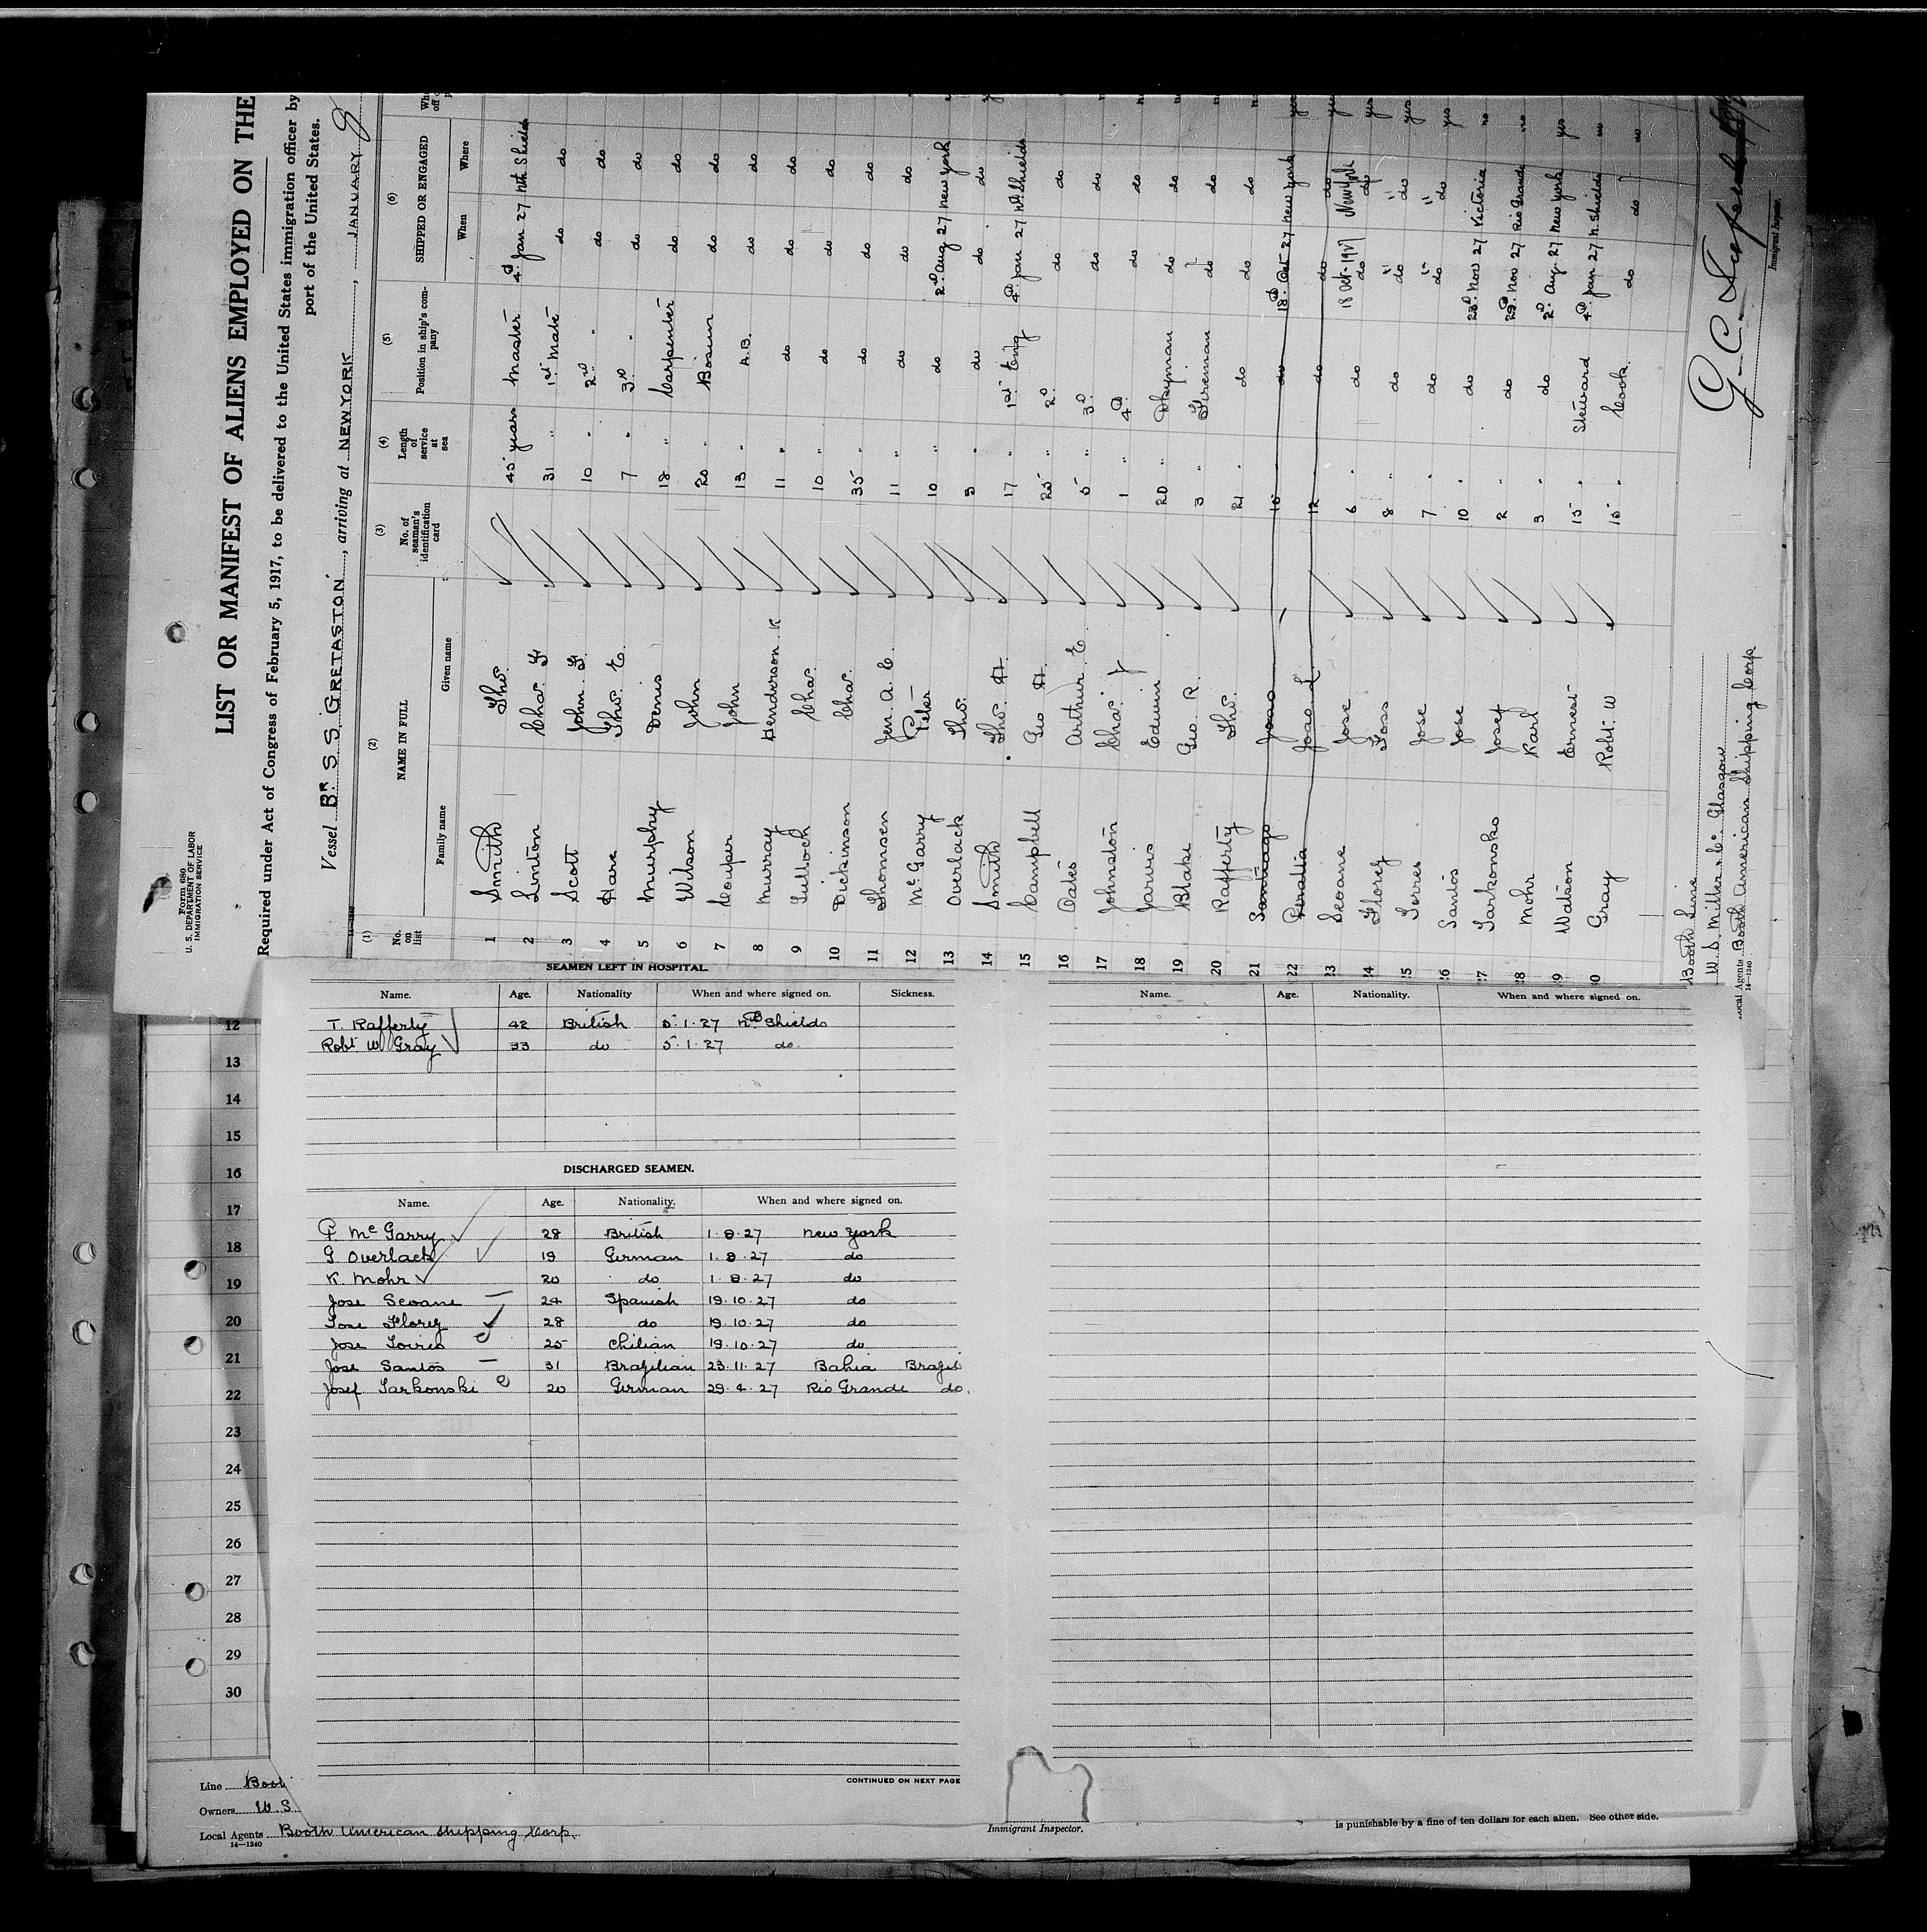 Form 680
U. S. DEPARTMENT OF LABOR
IMMIGRATION SERVICE
LIST OR MANIFEST OF ALIENS EMPLOYED ON THE
Required under Act of Congress of February 5, 1917, to be delivered to the United States immigration officer by
port of the United States.
Vessel Br. S. S. GRETASTON, arriving at NEW YORK, JANUARY
(1) (2) (3) (4) (5) (6)
No. on list NAME IN FULL No. of seaman's identification card Length of service at sea Position in ship's company SHIPPED OR ENGAGED
Family name Given name When Where
1 Smith Thos. 45 years Master 4th Jan 27 Nth Shields
2 Linton Chas. F 31 " 1st Mate do do
3 Scott John F. 10 " 2nd " do do
4 Hare Thos. E. 7 " 3rd " do do
5 Murphy Denis 18 " Carpenter do do
6 Wilson John 20 " Bosun do do
7 Couper John 13 " A.B. do do
8 Murray Henderson K 11 " do do do
9 Tulloch Chas. 10 " do do do
10 Dickinson Chas. 35 " do do do
11 Thomsen Jen. A. C. 11 " do do do
12 McGarry Peter 10 " do 2nd Aug 27 New York
13 Overlack Thos. 3 " do do do
14 Smith Thos. H. 17 " 1st Eng 4th Jan 27 Nth Shields
15 Campbell Geo H. 25 " 2nd do do
16 Oates Arthur E. 5 " 3rd do do
17 Johnston Chas. J 1 " 4th do do
18 Jarvis Edwin 20 " Dkeyman do do
19 Blake Geo R. 3 " Fireman do do
20 Rafferty Thos. 21 " do do do
21 Santiago Joao 10 " do 18th Oct 27 New York
22 Peralta Joao L. 12 " do do do
23 Seoane Jose 6 " do 18 Oct-1927 New York
do do
24 Florez Jose 8 " do " do " do
25 Torres Jose 7 " do " do " do
26 Santos Jose 10 " do 23rd Nov 27 Victoria
27 Sarkonsko Josef 2 " do 29th Nov 27 Rio Grande
28 Mohr Karl 3 " do 2nd Aug. 27 New York
29 Watson Ernest 15 " Steward 4th Jan 27 N. Shields
30 Gray Robt. W 15 " Cook do do
Booth Line
W. S. Miller & Co. Glasgow
Local Agents Booth American Shipping Corp
14—1240
Immigrant Inspector.
SEAMEN LEFT IN HOSPITAL.
Name. Age. Nationality When and where signed on. Sickness.
T. Rafferty 42 British 5.1.27 Nth Shields
Robt W Gray 33 do 5.1.27 do.
DISCHARGED SEAMEN.
Name. Age. Nationality. When and where signed on.
P. McGarry 28 British 1.8.27 New York
G Overlack 19 German 1.8.27 do
K. Mohr 20 do 1.8.27 do
Jose Seoane 24 Spanish 19.10.27 do
Jose Florez 28 do 19.10.27 do
Jose Torres 25 Chilian 19.10.27 do
Jose Santos 31 Brazilian 23.11.27 Bahia Brazil
Josef Sarkonski 20 German 29.4.27 Rio Grande do.
CONTINUED ON NEXT PAGE
Name. Age. Nationality. When and where signed on.
12
13
14
15
16
17
18
19
20
21
22
23
24
25
26
27
28
29
30
Line Boot
Owners W. S
Local Agents Booth American Shipping Corp.
14—1240
Immigrant Inspector.
is punishable by a fine of ten dollars for each alien. See other side.